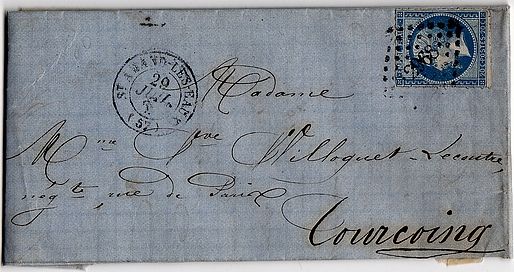 ST AMAND-LES-EAUX
20
JUIL.
(57)
Madame
Mme Vve Willoquet-Lecontre,
négte, rue de Paris
Tourcoing